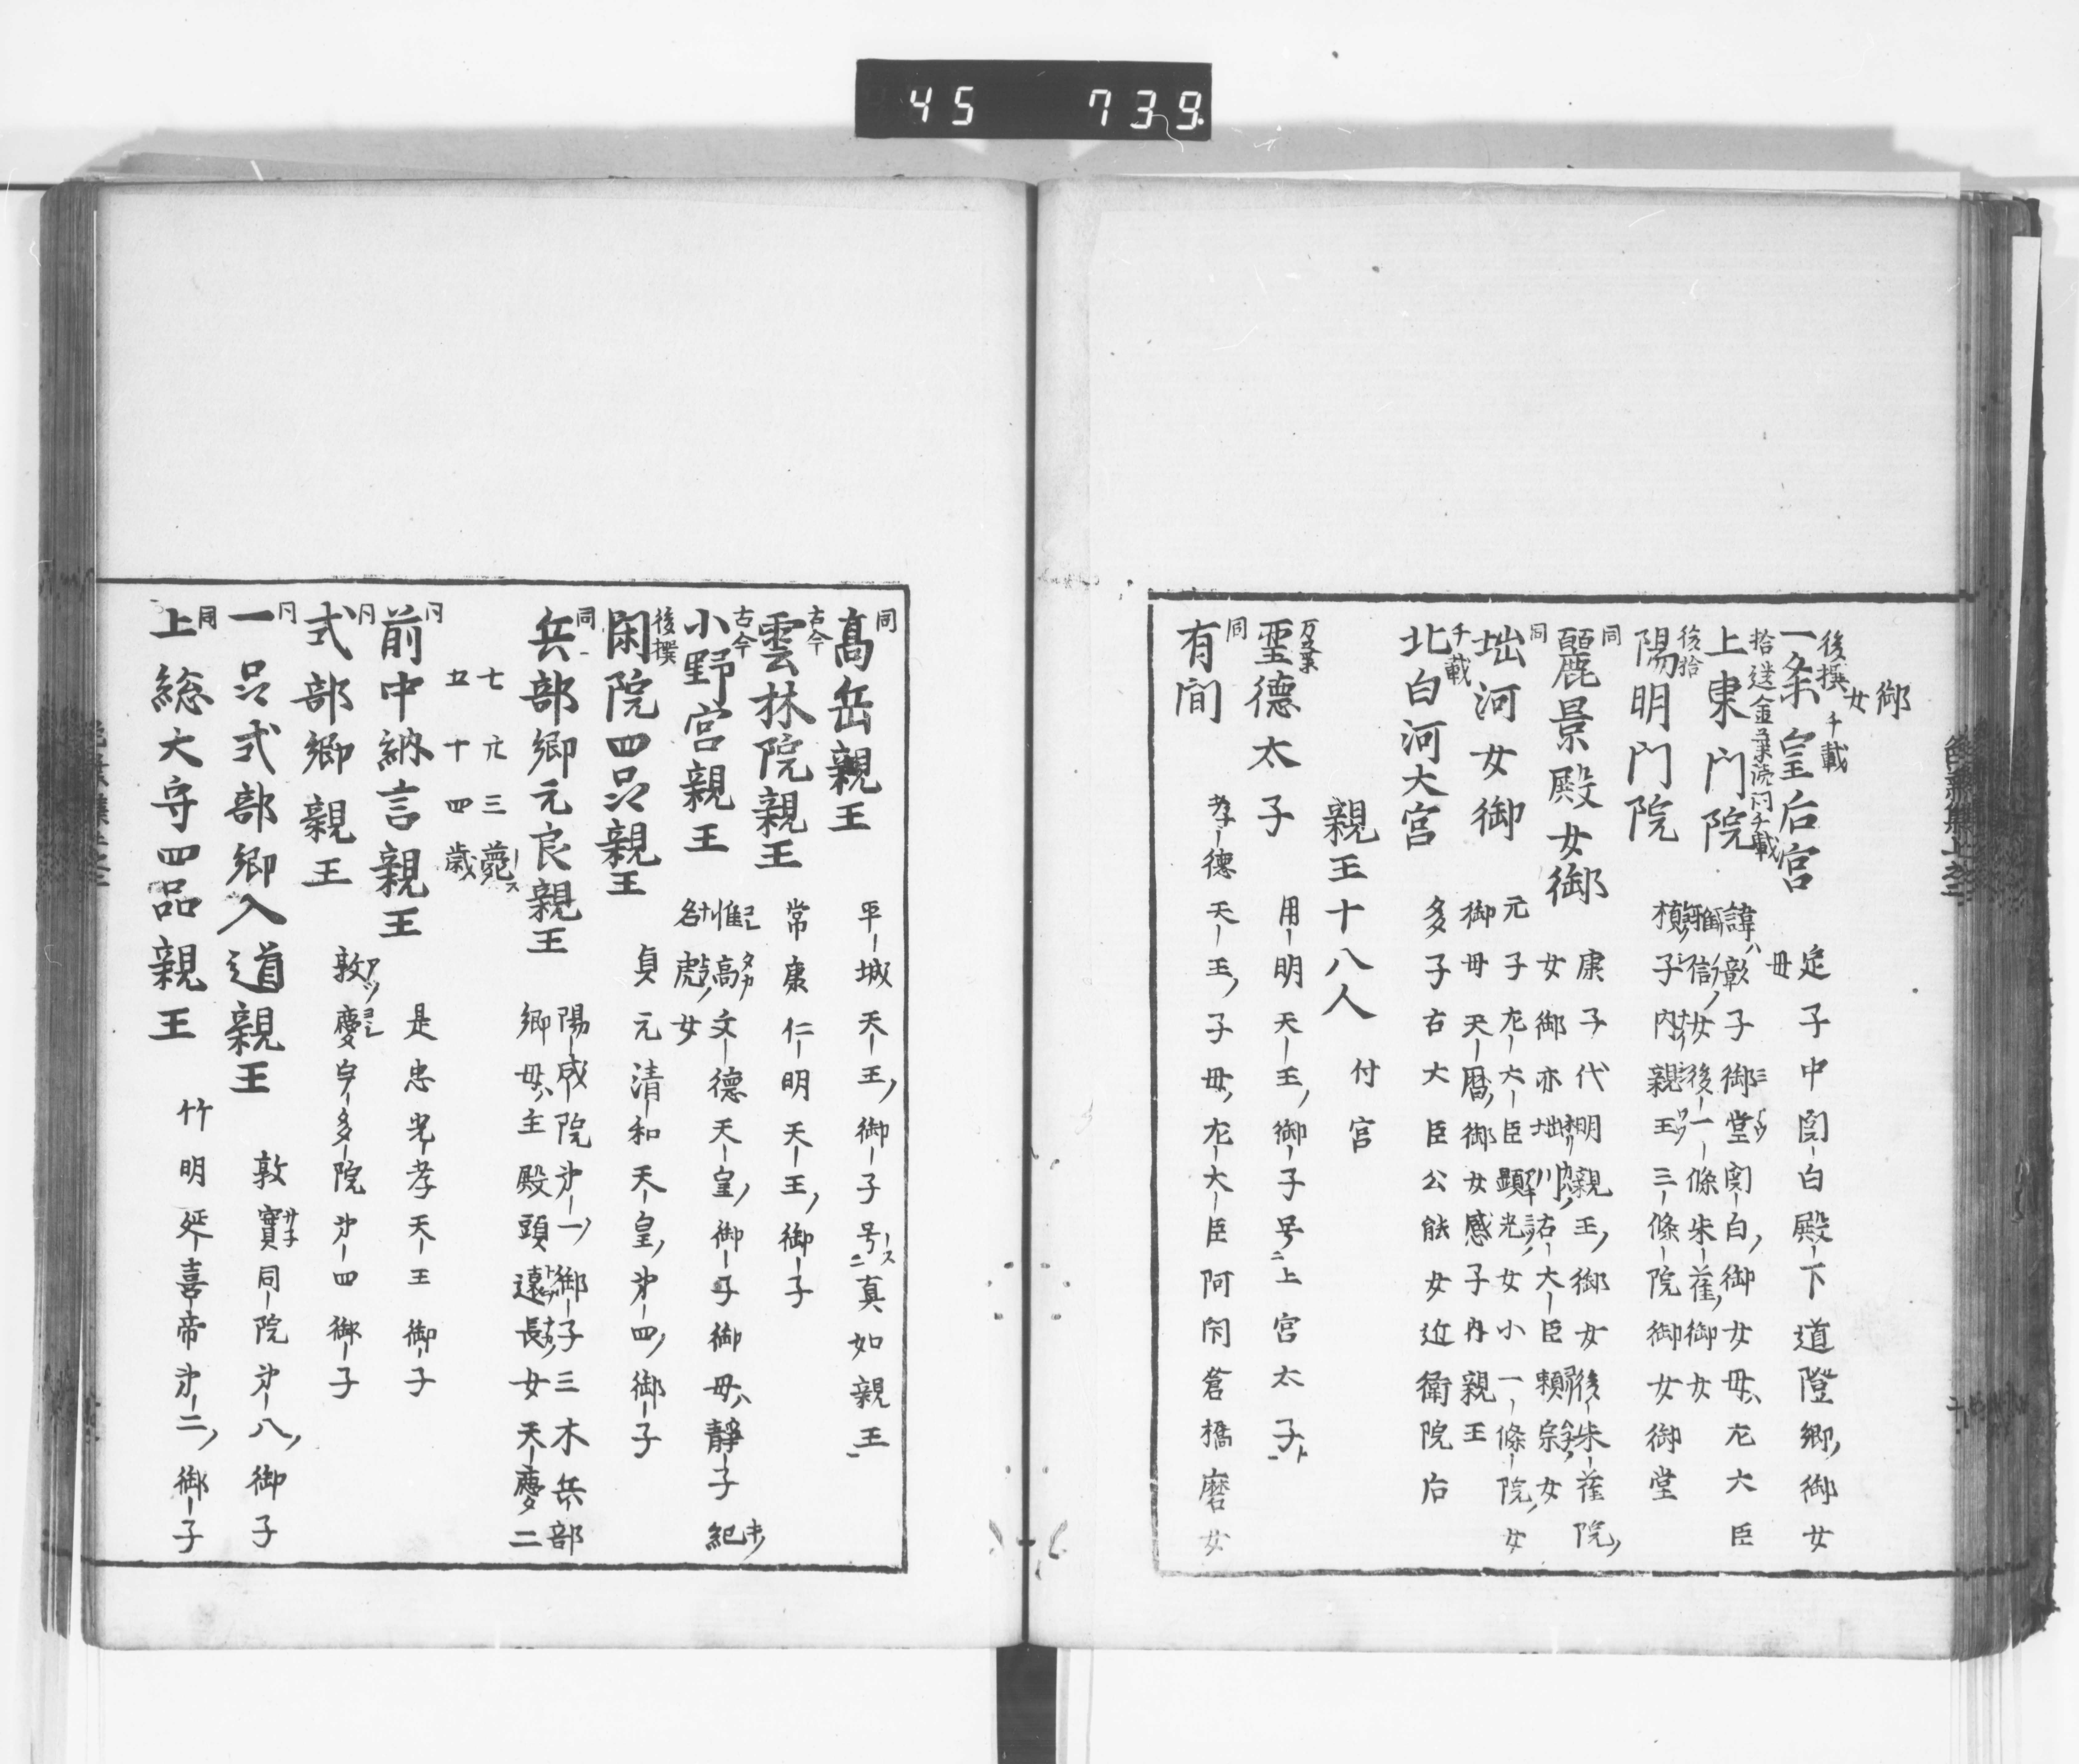 45 739
御
女
後撰 千載
一条皇后宮
定子中関白殿下道隆卿御女
母
拾遺金葉
上東門院
諱ハ彰子御堂関白御女母ハ左大臣
雅信ノ女後一條朱雀御女
後拾
陽明門院
禎子内親王三條院御女御堂
同
麗景殿女御
康子代明親王御女後朱雀院
女御亦堀川右大臣頼宗女
同
堀河女御
元子左大臣顕光女小一條院女
御母天暦御女盛子内親王
千載
北白河大宮
多子右大臣公能女近衛院后
親王十八人 付宮
万葉
聖徳太子
用明天王御子号ニ上宮太子ト
同
有間
孝徳天王子母左大臣阿閇倉橋磨女
同
高岳親王
平城天王御子号ス真如親王
古今
雲林院親王
常康仁明天王御子
古今
小野宮親王
惟高文徳天皇御子御母ハ靜子紀
名虎女
後撰
閑院四品親王
貞元清和天皇第四御子
同
兵部卿元良親王
陽成院第一御子三木兵部
卿母ハ主殿頭遠長女天慶二
七元三薨ス
五十四歳
同
前中納言親王
是忠光孝天王御子
同
式部卿親王
敦慶宇多院第四御子
同
一品式部卿入道親王
敦實同院第八御子
同
上総大守四品親王
竹明延喜帝第二御子